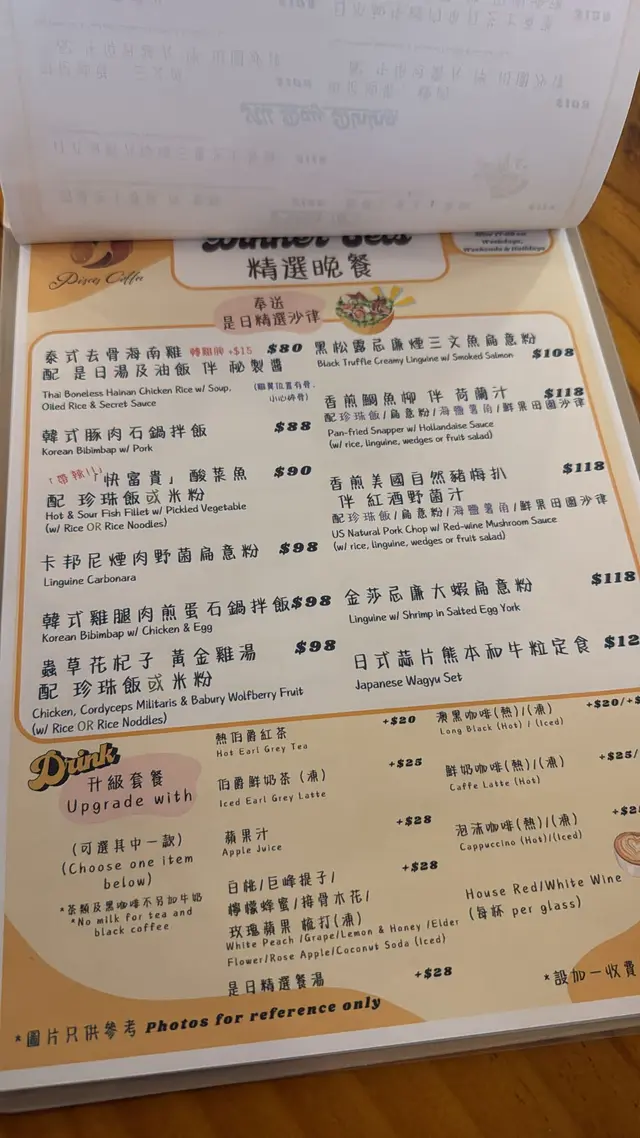 Dinner Sets
精選晚餐
Weekdays,
Weekends & Holidays
Pisces Coffee
奉送
是日精選沙律
泰式去骨海南雞 轉雞髀 +$15 $80
配 是日湯及油飯 伴 秘製醬
Thai Boneless Hainan Chicken Rice w/ Soup,
Oiled Rice & Secret Sauce
(雞質位置有骨,
小心碎骨)
韓式豚肉石鍋拌飯 $88
Korean Bibimbap w/ Pork
「帶辣!!」 快富貴」酸菜魚 $90
配 珍珠飯或米粉
Hot & Sour Fish Fillet w/ Pickled Vegetable
(w/ Rice OR Rice Noodles)
卡邦尼煙肉野菌扁意粉 $98
Linguine Carbonara
韓式雞腿肉煎蛋石鍋拌飯 $98
Korean Bibimbap w/ Chicken & Egg
蟲草花杞子 黃金雞湯 $98
配 珍珠飯或米粉
Chicken, Cordyceps Militaris & Babury Wolfberry Fruit
(w/ Rice OR Rice Noddles)
黑松露忌廉煙三文魚扁意粉
Black Truffle Creamy Linguine w/ Smoked Salmon $108
香煎鯛魚柳 伴 荷蘭汁 $118
配珍珠飯/扁意粉/海鹽薯角/鮮果田園沙律
Pan-fried Snapper w/ Hollandaise Sauce
(w/ rice, linguine, wedges or fruit salad)
香煎美國自然豬梅扒 $118
伴 紅酒野菌汁
配珍珠飯/扁意粉/海鹽薯角/鮮果田園沙律
US Natural Pork Chop w/ Red-wine Mushroom Sauce
(w/ rice, linguine, wedges or fruit salad)
金莎忌廉大蝦扁意粉 $118
Linguine w/ Shrimp in Salted Egg York
日式蒜片熊本和牛粒定食 $12
Japanese Wagyu Set
Drink
升級套餐
Upgrade with
(可選其中一款)
(Choose one item
below)
*茶類及黑咖啡不另加牛奶
*No milk for tea and
black coffee
熱伯爵紅茶 +$20
Hot Earl Grey Tea
伯爵鮮奶茶(凍) +$25
Iced Earl Grey Latte
蘋果汁 +$28
Apple Juice
白桃/巨峰提子/ +$28
檸檬蜂蜜/接骨木花/
玫瑰蘋果 梳打(凍)
White Peach /Grape/Lemon & Honey /Elder
Flower/Rose Apple/Coconut Soda (Iced)
是日精選餐湯 +$28
澳黑咖啡(熱)/(凍) +$20/+$
Long Black (Hot) / (Iced)
鮮奶咖啡(熱)/(凍) +$25/
Caffe Latte (Hot)
泡沫咖啡(熱)/(凍) +$2
Cappuccino (Hot)/(Iced)
House Red/White Wine
(每杯 per glass)
*圖片只供參考 Photos for reference only
*設加一收費